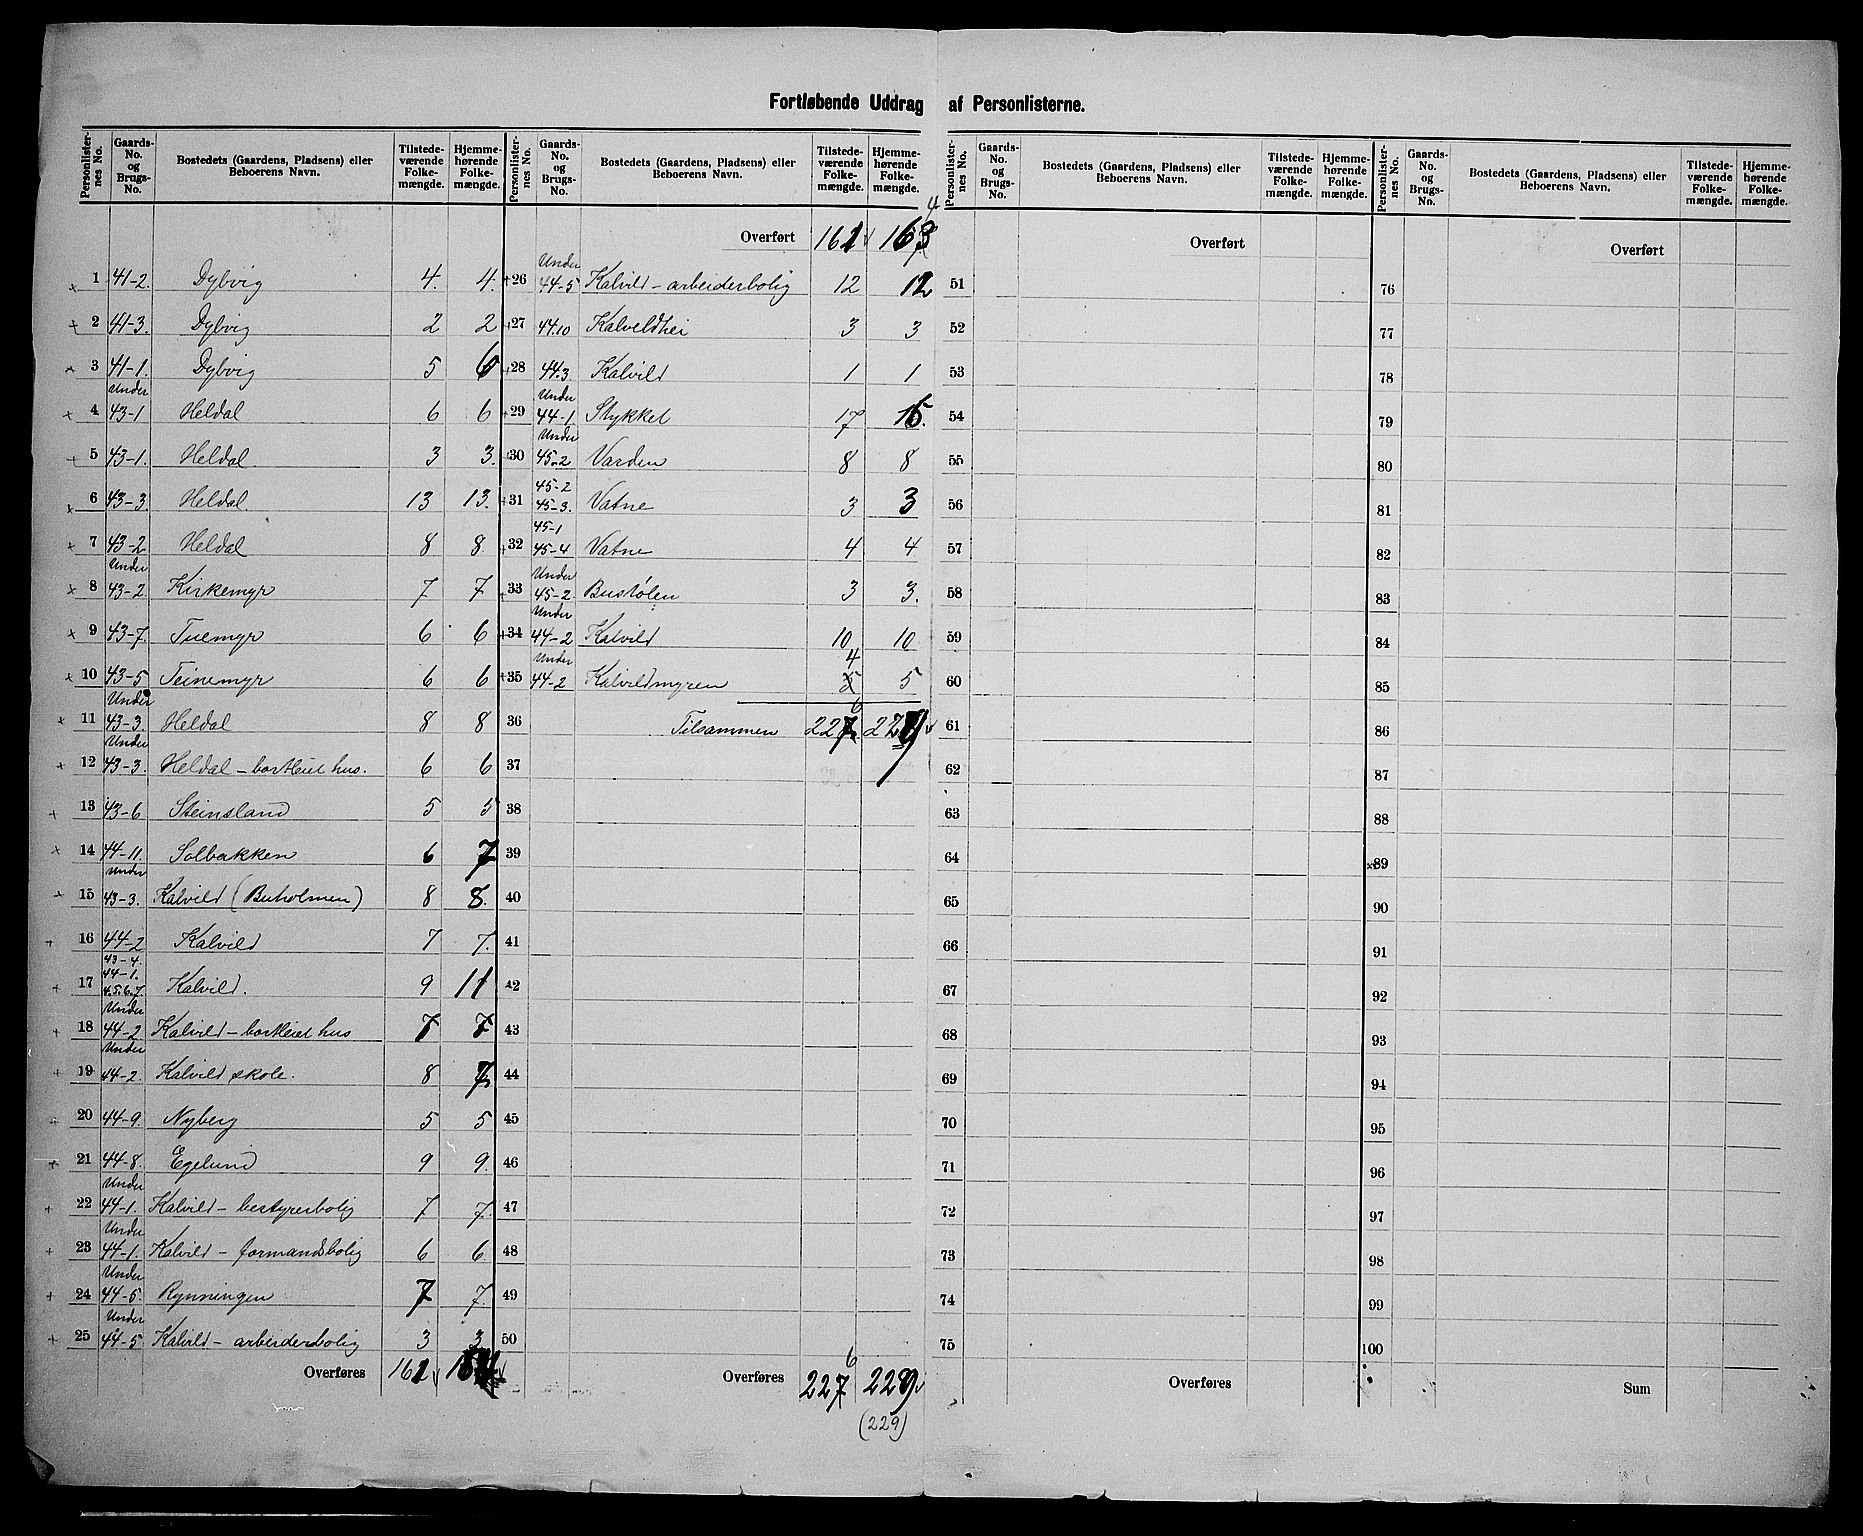 Fortløbende Uddrag af Personlisterne.
Personlister- nes No. | Gaards- No. og Brugs- No. | Bostedets (Gaardens, Pladsens) eller Beboerens Navn. | Tilstede- værende Folke- mængde. | Hjemme- hørende Folke- mængde.
1 41-2. Dybvig 4. 4.
2 41-3. Dybvig 2 2
3 41-1. Dybvig 5 6
4 Under 43-1 Heldal 6 6
5 43-1. Heldal 3 3.
6 43-3. Heldal 13 13.
7 43-2 Heldal 8 8
8 Under 43-2. Kirkemyr 7 7
9 43-7. Tuemyr 6 6
10 43-5 Teinemyr 6 6
11 Under 43-3. Heldal 8 8
12 Under 43-3. Heldal - bortleiet hus. 6 6
13 43-6 Steinsland 5 5
14 44-11. Solbakken 6 7
15 Under 43-3. Kalvild (Buholmen) 8 8.
16 44-2 Kalvild 7 7.
17 43-4. 44-1. 4.5.6.7. Kalvild. 9 11
18 Under 44-2 Kalvild - bortleiet hus 7 7
19 Under 44-2. Kalvild skole. 8 7
20 44-9. Nyberg 5 5
21 44-8. Egelund 9 9.
22 Under 44-1. Kalvild - bestyrerbolig 7 7.
23 Under 44-1. Kalvild - formandsbolig 6 6
24 Under 44-5. Rynningen 7 7.
25 Under 44-5 Kalvild - arbeiderbolig 3 3
Overføres 161 164
Personlister- nes No. | Gaards- No. og Brugs- No. | Bostedets (Gaardens, Pladsens) eller Beboerens Navn. | Tilstede- værende Folke- mængde. | Hjemme- hørende Folke- mængde.
4
Overført 161 163
26 Under 44-5 Kalvild - arbeiderbolig 12 12
27 44.10 Kalveldhei 3 3
28 44.3 Kalvild 1 1
29 Under 44-1. Stykket 17 15.
30 Under 45-2 Varden 8 8
31 45-2 45-3. Vatne 3 3
32 45-1 45-4 Vatne 4 4
33 Under 45-2 Bustølen 3 3.
34 Under 44-2 Kalvild 10 10
35 Under 44-2 Kalvildmyren 4 5 5
36 Tilsammen 227 6 229
37
38
39
40
41
42
43
44
45
46
47
48
49
50
Overføres 227 6 229
(229)
Personlister- nes No. | Gaards- No. og Brugs- No. | Bostedets (Gaardens, Pladsens) eller Beboerens Navn. | Tilstede- værende Folke- mængde. | Hjemme- hørende Folke- mængde.
Overført
51
52
53
54
55
56
57
58
59
60
61
62
63
64
65
66
67
68
69
70
71
72
73
74
75
Overføres
Personlister- nes No. | Gaards- No. og Brugs- No. | Bostedets (Gaardens, Pladsens) eller Beboerens Navn. | Tilstede- værende Folke- mængde. | Hjemme- hørende Folke- mængde.
Overført
76
77
78
79
80
81
82
83
84
85
86
87
88
89
90
91
92
93
94
95
96
97
98
99
100
Sum